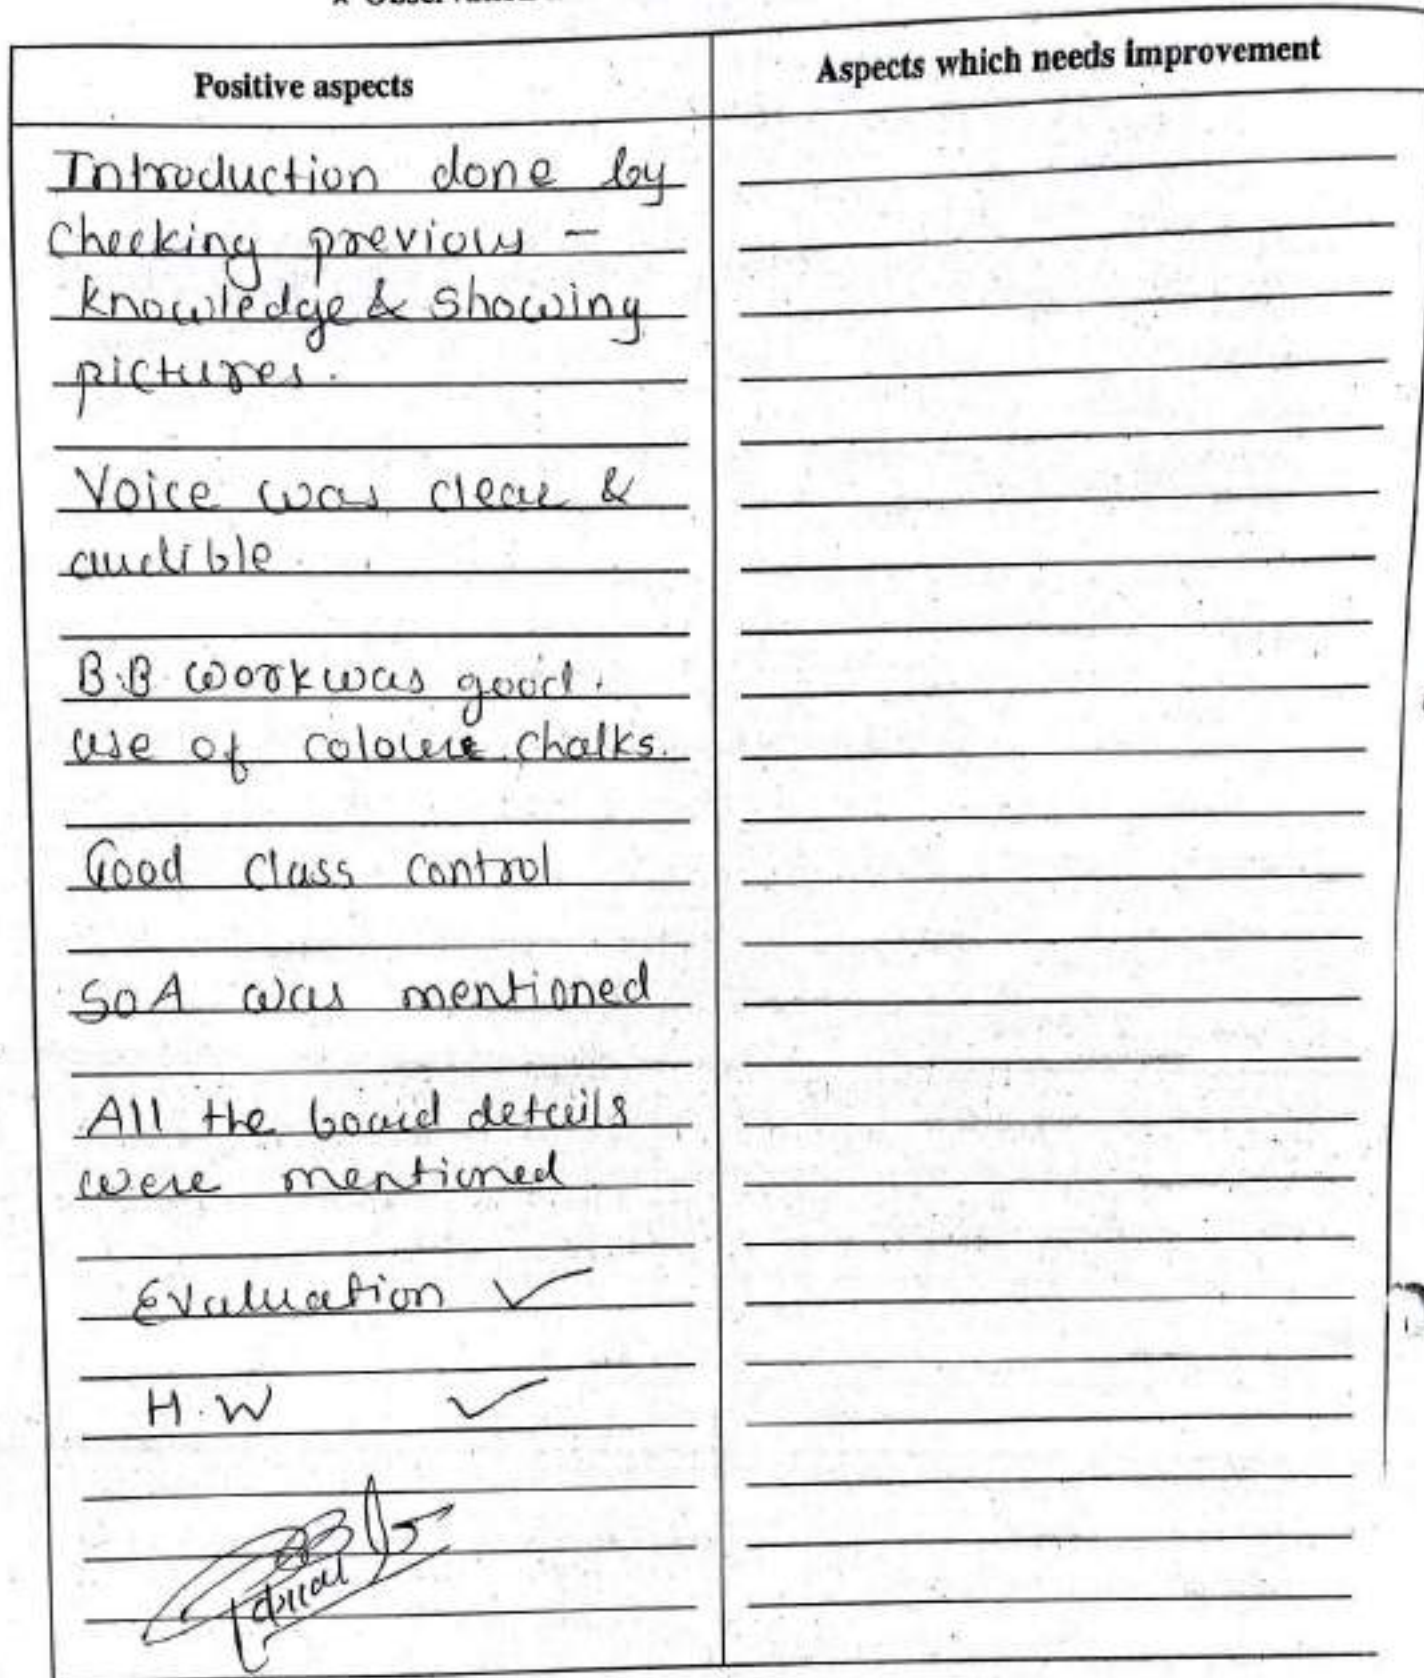 Positive aspects
Aspects which needs improvement
Introduction done by
checking previous -
knowledge & showing
pictures.
Voice was clear &
audible.
B.B. work was good.
use of colour chalks.
Good class control
SOA was mentioned
All the board details
were mentioned
Evaluation ✓
H.W ✓